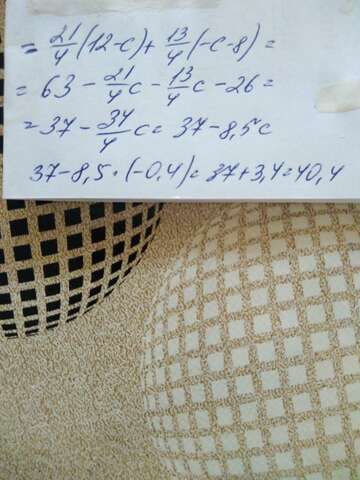 = 21/4 (12-c) + 13/4 (-c-8) =
= 63 - 21/4 c - 13/4 c - 26 =
= 37 - 34/4 c = 37 - 8,5c
37 - 8,5 · (-0,4) = 37 + 3,4 = 40,4